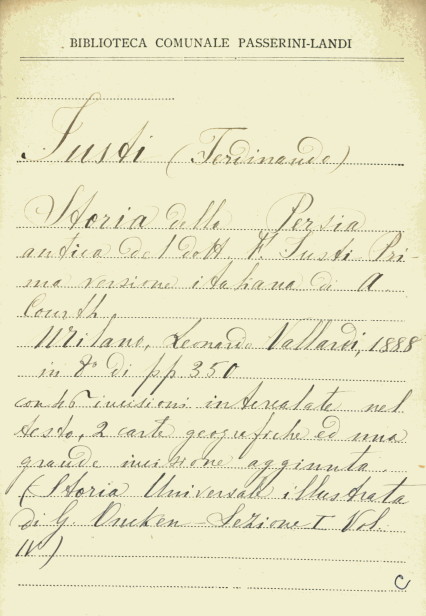 BIBLIOTECA COMUNALE PASSERINI-LANDI
Justi (Ferdinando)
Storia della Persia
antica del dott. F. Justi Pri-
ma versione italiana di A.
Courth.
Milano, Leonardo Vallardi, 1888
in 8° di pp 350
con 46 incisioni intercalate nel
testo, 2 carte geografiche ed una
grande incisione aggiunta.
(Storia Universale illustrata
di G. Oncken Sezione I Vol.
IV)
C